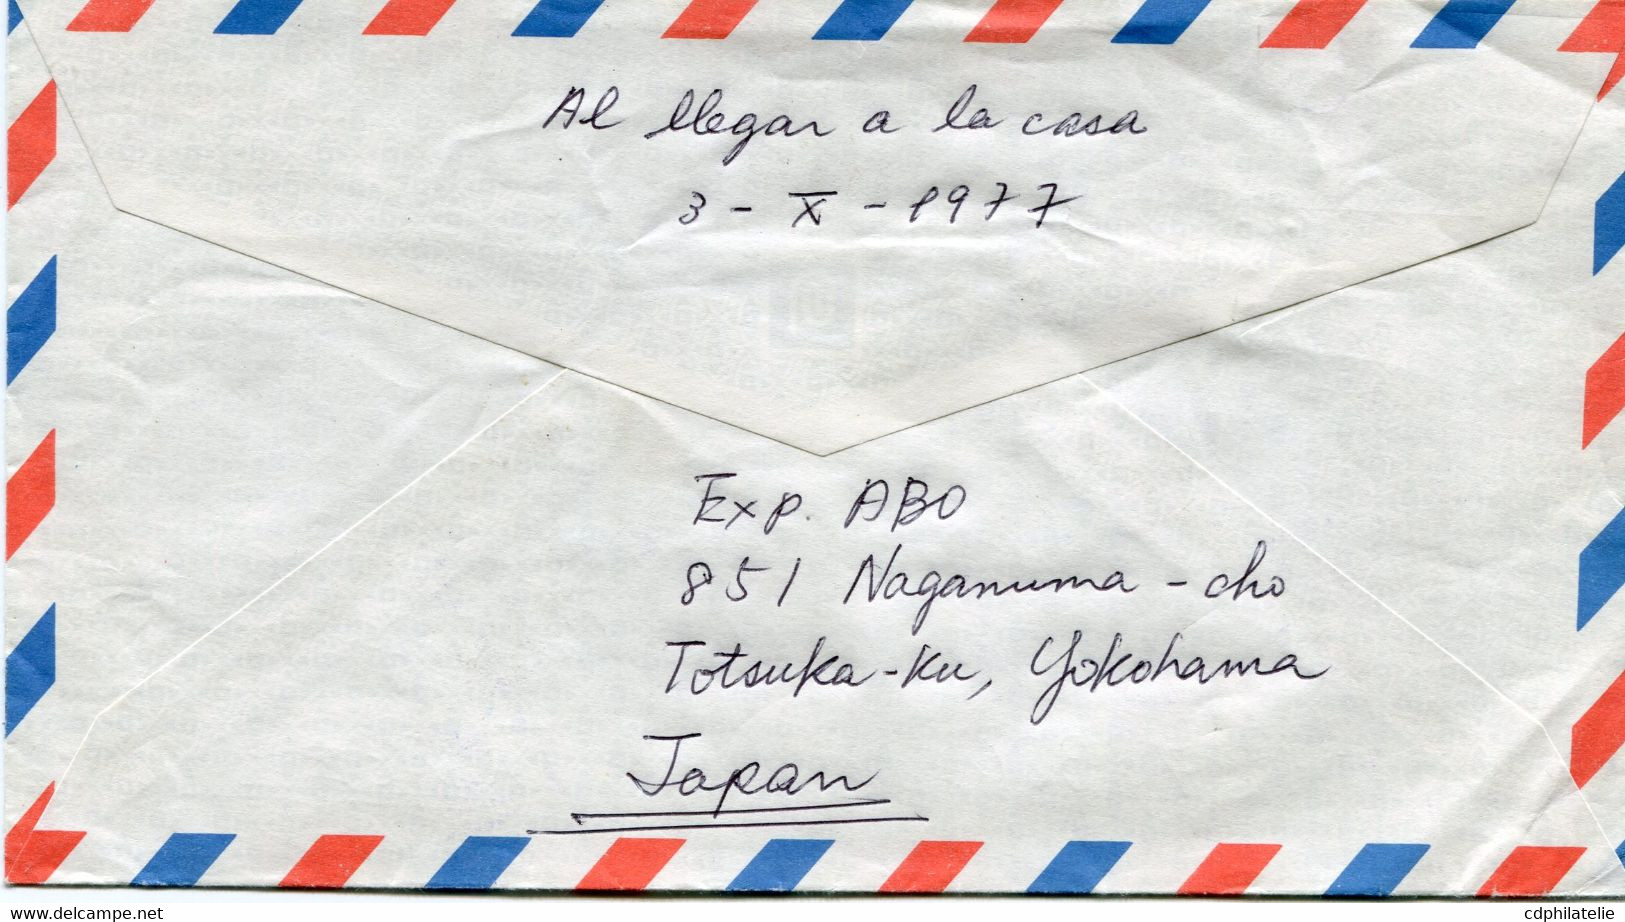 Al llegar a la casa
3 - X - 1977
Exp. ABO
851 Naganuma - cho
Totsuka - Ku, Yokohama
Japan
www.delcampe.net
cdphilatelie